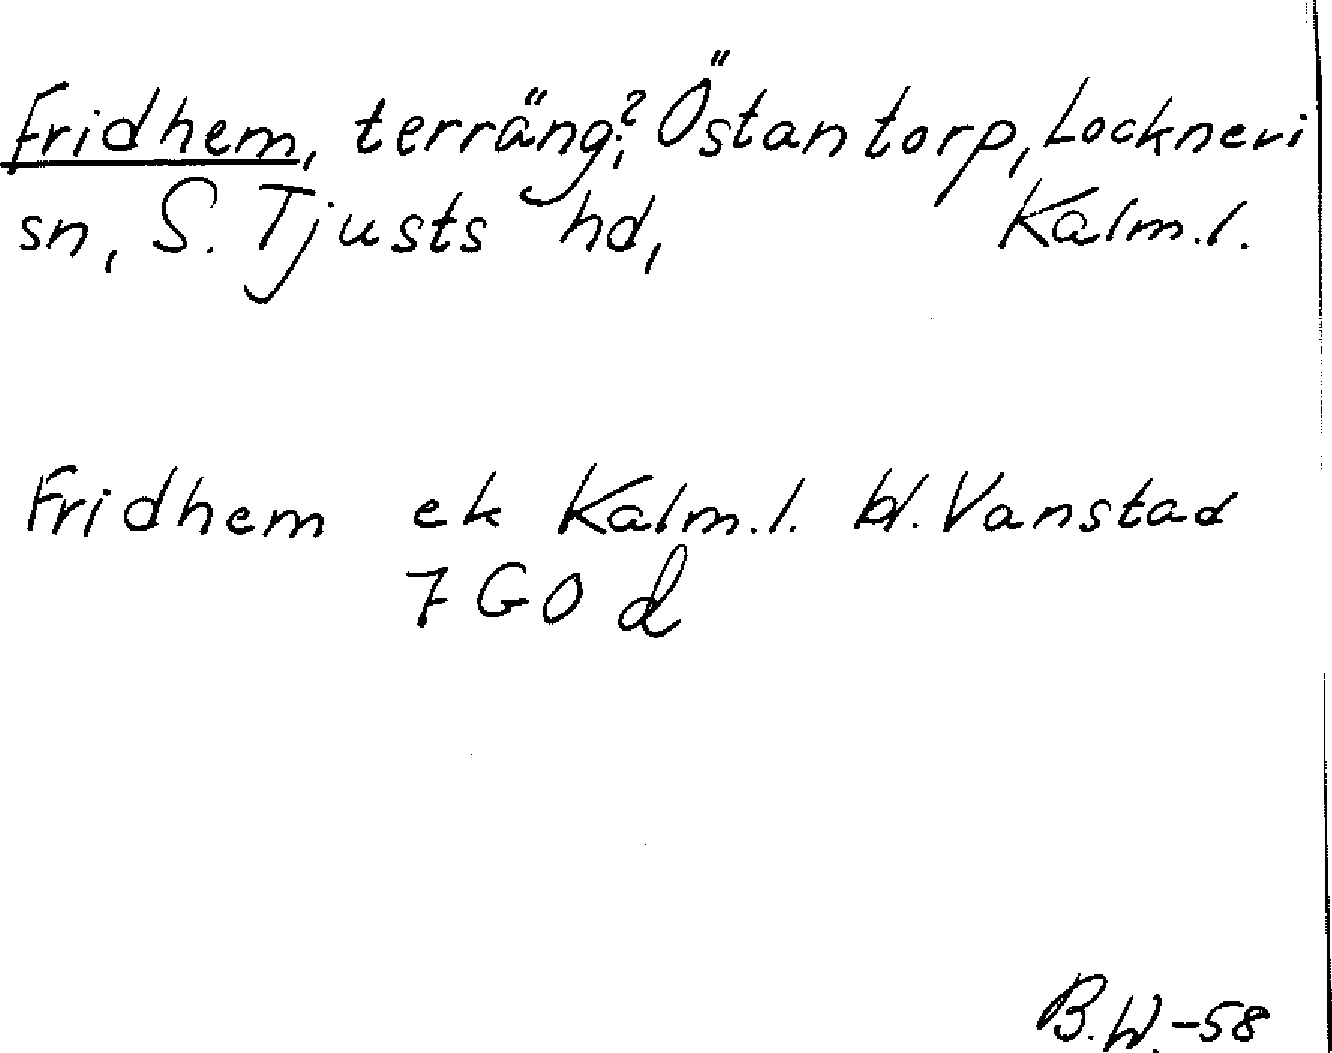 Fridhem, terräng?, Östantorp, Locknevi
sn, S. Tjusts hd, Kalm.l.
Fridhem ek Kalm.l. bl. Vanstad
7 G O d
B.W.-58